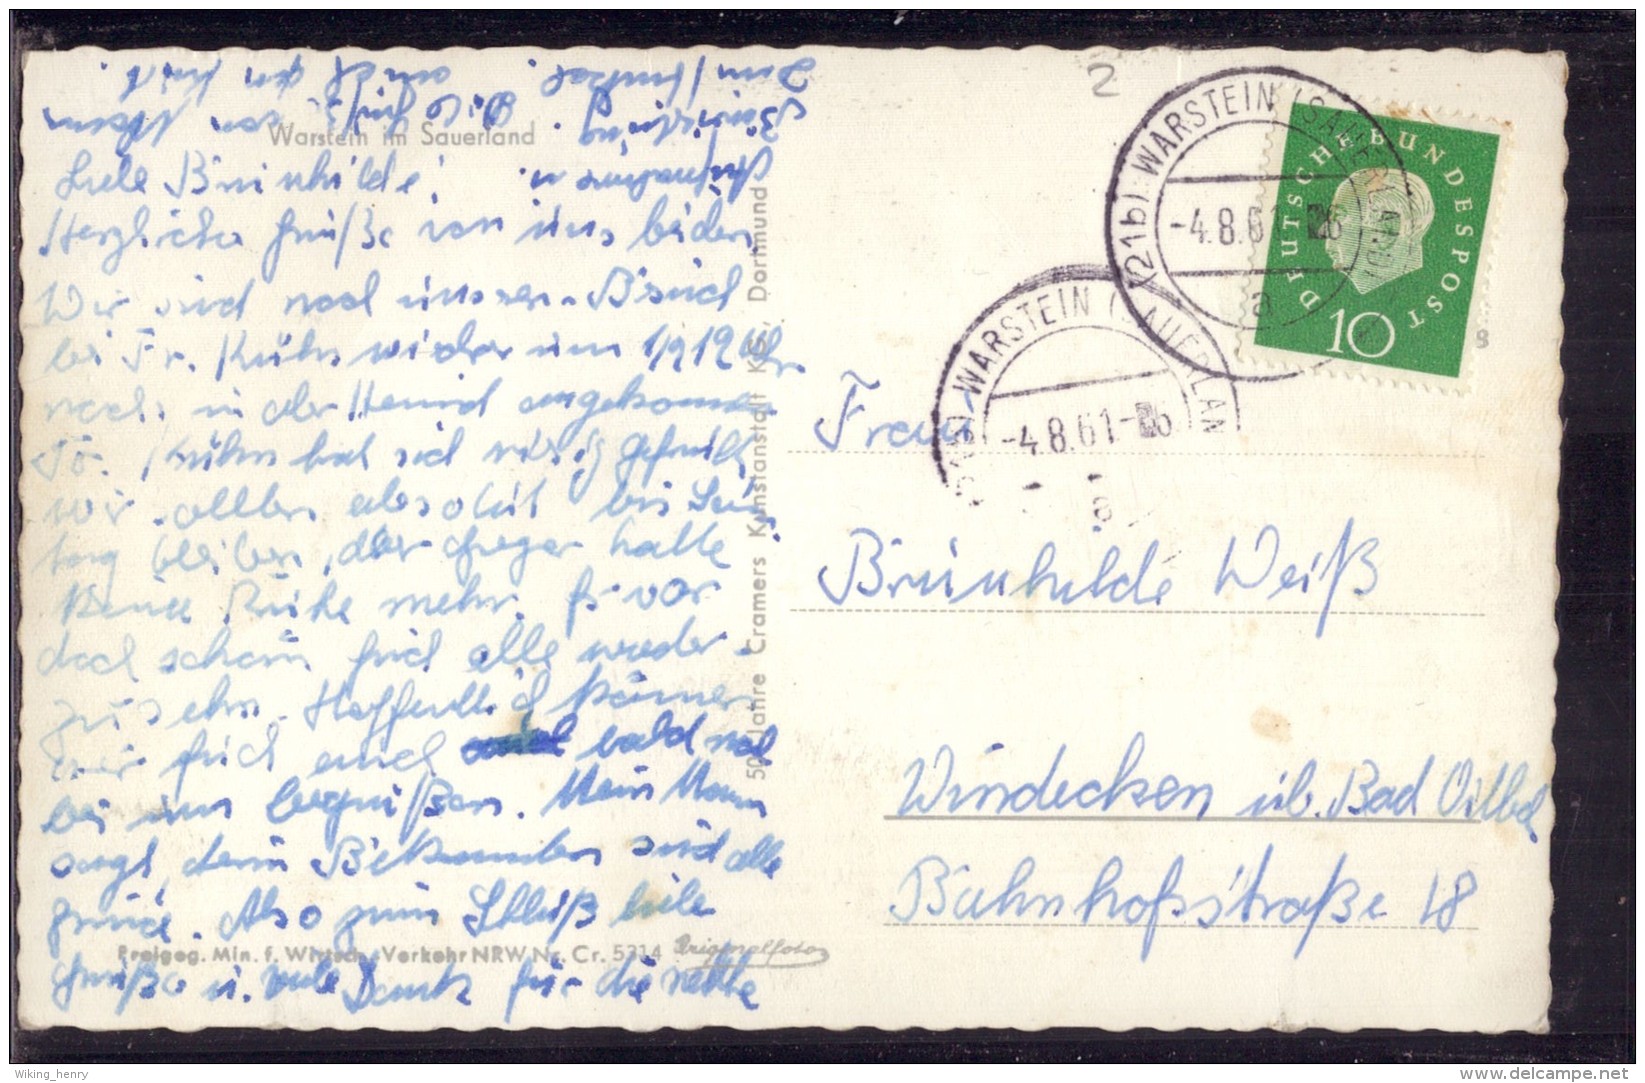 Warstein im Sauerland
Liebe Brünhilde!
Herzliche Grüße von uns beiden
Wir sind nach unserem Besuch
bei Fr. Kühn wieder um 1/2 12 Uhr
nachts in der Heimat angekommen
Fr. Kühn hat sich riesig gefreut,
wir sollten absolut bis Sonn
tag bleiben, aber Gregor hatte
keine Ruhe mehr. Es war
doch schön Euch alle wieder
zusehn. Hoffentlich können
wir Euch auch bald mal
bei uns begrüßen. Mein Mann
sagt, deine Bekannten sind alle
prima. Also zum Schluß viele
Grüße u. viele Dank für die nette
Aufnahme u.
Bewirtung. Viele Grüße von Mann
50 Jahre Cramers Kunstanstalt KG, Dortmund
Freigeg. Min. f. Wirtsch. u. Verkehr NRW Nr. Cr. 5314 Originalfoto
2
(21b) WARSTEIN (SAUERLAND)
-4.8.61
a
DEUTSCHE BUNDESPOST
10
(21b) WARSTEIN (SAUERLAND)
-4.8.61
a
s
Frau
Brünhilde Weiß
Windecken üb. Bad Vilbel
Bahnhofsstraße 18
Wiking_henry
delcampe.net